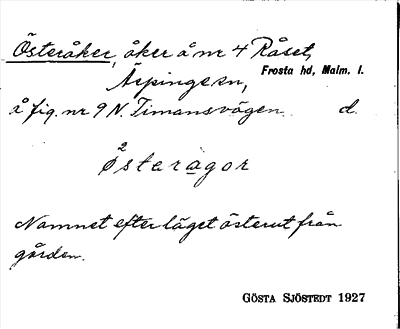 Österåker, åker å nr 4 Råset,
Frosta hd, Malm. l.
Äspinge sn,
å fig. nr 9 N. Timansvägen. d.
2
østeragor
Namnet efter läget österut från
gården.
GÖSTA SJÖSTEDT 1927